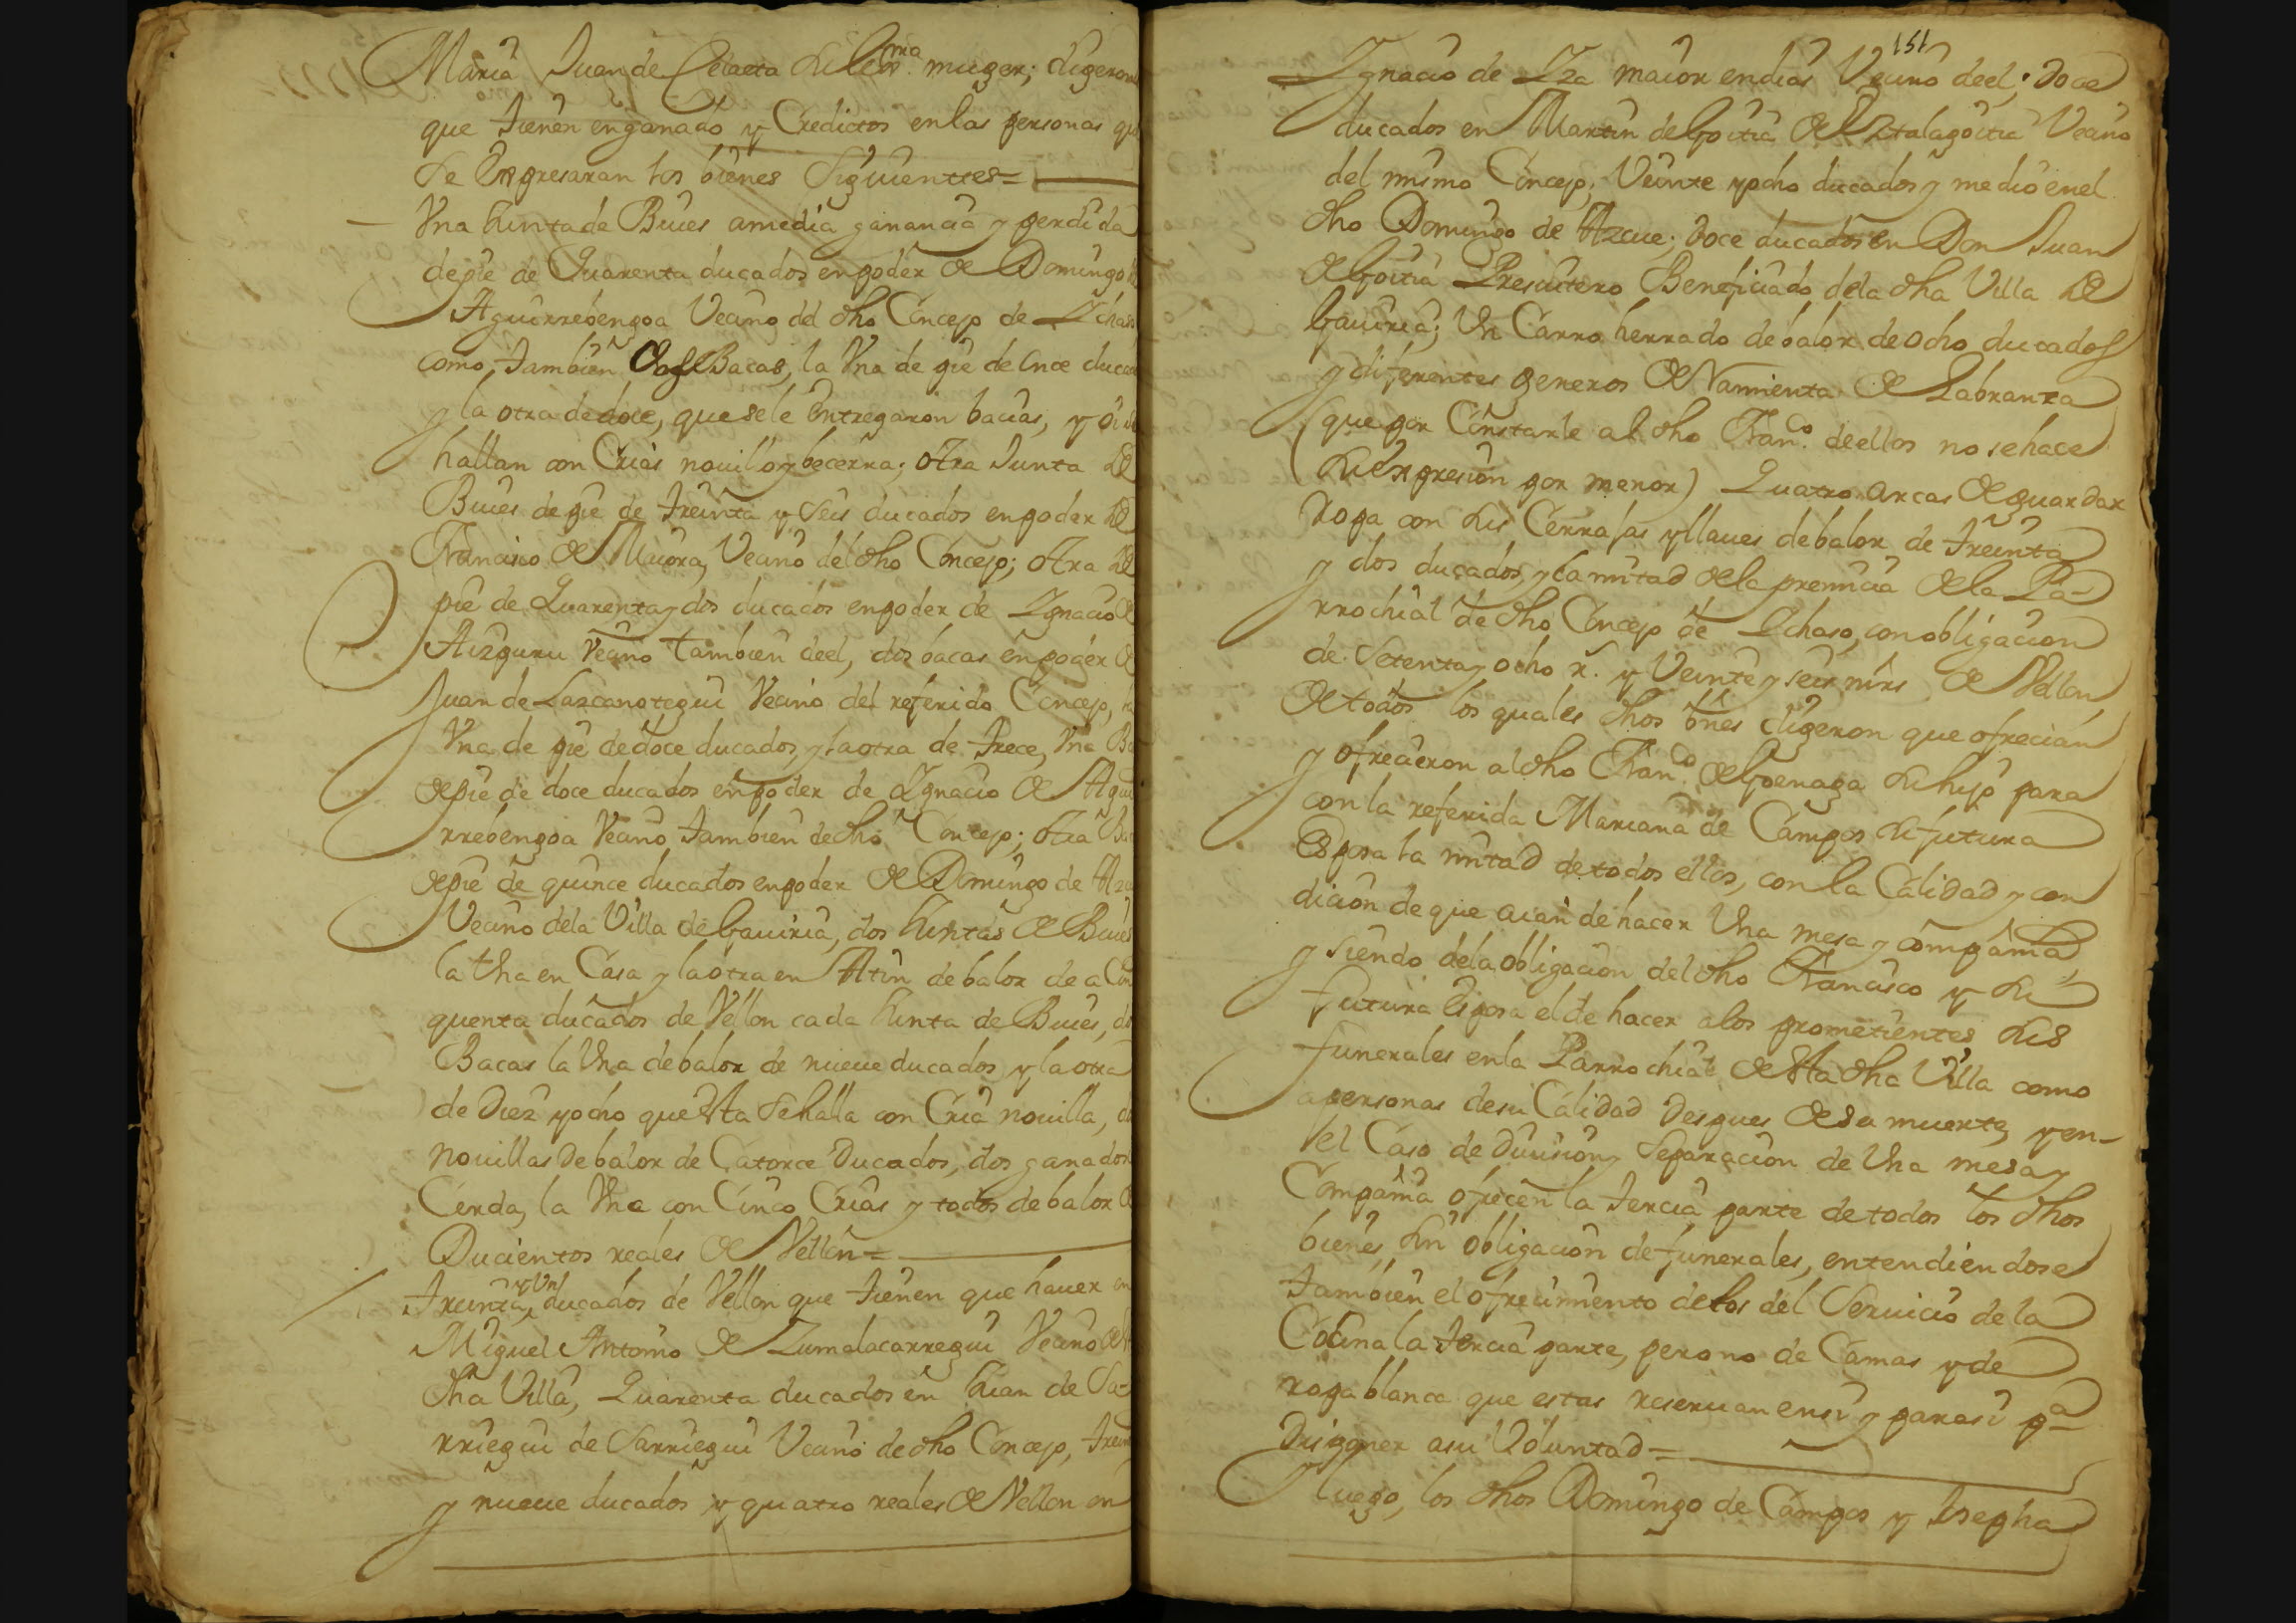 Maria Juan de Celaeta su lexma. muger; digeron
que tienen en ganado y Credictos en las personas que
se Expresaran los bienes siguientes=
Una Junta de Bueies a media ganancia y perdida
de pie de Quarenta ducados en poder de Domingo de
Aguirrebengoa Vecino del dho Concejo de Ichaso
como tambien dos Bacas, la Una de pie de once ducados
y la otra de doce, que se le entregaron bacias, y oi se
hallan con Crias novillo y becerra; otra Junta de
Bueies de pie de treinta y seis ducados en poder de
Francisco de Maiora, Vecino del dho Concejo; otra de
pie de Quarenta y dos ducados en poder de Ignacio de
Aizguru Vecino tambien de el, dos bacas en poder de
Juan de Lazcanotegui Vecino del referido Concejo, la
Una de pie de doce ducados, y la otra de trece, Una Ba
de pie de doce ducados en poder de Ignacio de Agui
rrebengoa Vecino tambien de dho Concejo; otra Ba
de pie de quince ducados en poder de Domingo de Azcu
Vecino dela Villa de Gaviria, dos Juntas de Bueies
la Una en Casa y la otra en Atin de balor de a Cin
quenta ducados de Vellon cada Junta de Bueies, dos
Bacas la Una de balor de nueve ducados y la otra
de Diez y ocho que esta se halla con Cria novilla, dos
novillas de balor de Catorce Ducados, dos ganados
Cerda, la Una con Cinco Crias y todos de balor de
Ducientos reales de Vellon=
treinta y Un ducados de Vellon que tienen que haver en
Miguel Antonio de Zumalacarregui Vecino de
dha Villa, Quarenta ducados en Juan de Sa-
rriegui de Sarriegui Vecino de dho Concejo, treinta
y nueve ducados y quatro reales de Vellon en
151
Ignacio de Iza maior en dias Vecino de el; doce
ducados en Martin de Goitia de Iztalagoitia Vecino
del mismo Concejo; Veinte y ocho ducados y medio en el
dho Domingo de Azcue; doce ducados en Don Juan
de Goitia Presvitero Beneficiado dela dha Villa de
Gaviria; Un Carro herrado de balor de ocho ducados
y diferentes generos de Varrienta de Labranza
(que por Constarle al dho Franco. de ellos no se hace
su Expresion por menor) Quatro arcas de guardar
ropa con sus Cerrajas y llaves de balor de treinta
y dos ducados, y la mitad de la premicia de la Pa-
rrochial de dho Concejo de Ichaso, con obligacion
de Setenta y ocho rs. y Veinte y seis mrs de Vellon
de todos los quales dhos bnes digeron que ofrecian
y ofrecieron al dho Franco. de Goenaga su hijo para
con la referida Mariana de Campos su futura
Esposa la mitad de todos ellos, con la Calidad y con
dicion de que aian de hacer Una mesa y compañia,
y siendo dela obligacion del dho Francisco y su
futura Esposa el de hacer a los prometientes sus
funerales en la Parrochial de esta dha Villa como
a personas de su Calidad Despues de su muerte, y en-
el Caso de Division y Separacion de Una mesa y
Compañia ofrecen la tercia parte de todos los dhos
bienes sin obligacion de funerales, entendiendose
tambien el ofrecimiento de los del Servicio de la
Cocina la tercia parte, pero no de Camas y de
ropa blanca que estas reservan en si y para si pa-
Disponer a su Voluntad=
Y luego, los dhos Domingo de Campos y Josepha